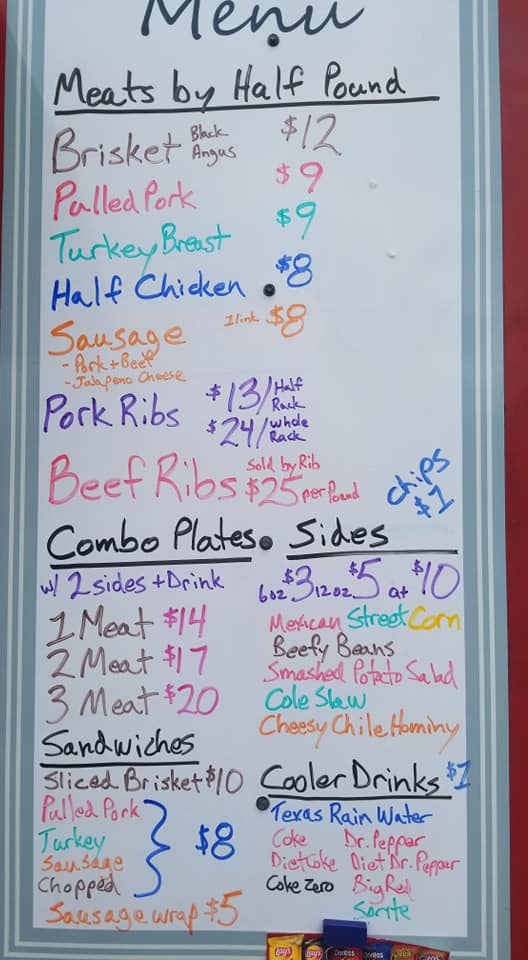 Menu
Meats by Half Pound
Brisket Black Angus $12
Pulled Pork $9
Turkey Breast $9
Half Chicken $8
Sausage 1 link $8
- Pork + Beef
- Jalapeno Cheese
Pork Ribs $13/Half Rack
$24/whole Rack
Beef Ribs Sold by Rib $25 per Pound
Chips $1
Combo Plates
w/ 2 sides + Drink
1 Meat $14
2 Meat $17
3 Meat $20
Sides
6oz $3 12oz $5 qt $10
Mexican Street Corn
Beefy Beans
Smashed Potato Salad
Cole Slaw
Cheesy Chile Hominy
Sandwiches
Sliced Brisket $10
Pulled Pork
Turkey
Sausage
Chopped
$8
Sausage wrap $5
Cooler Drinks $1
Texas Rain Water
Coke Dr. Pepper
Diet Coke Diet Dr. Pepper
Coke Zero Big Red
Sprite
Lay's Lay's Doritos